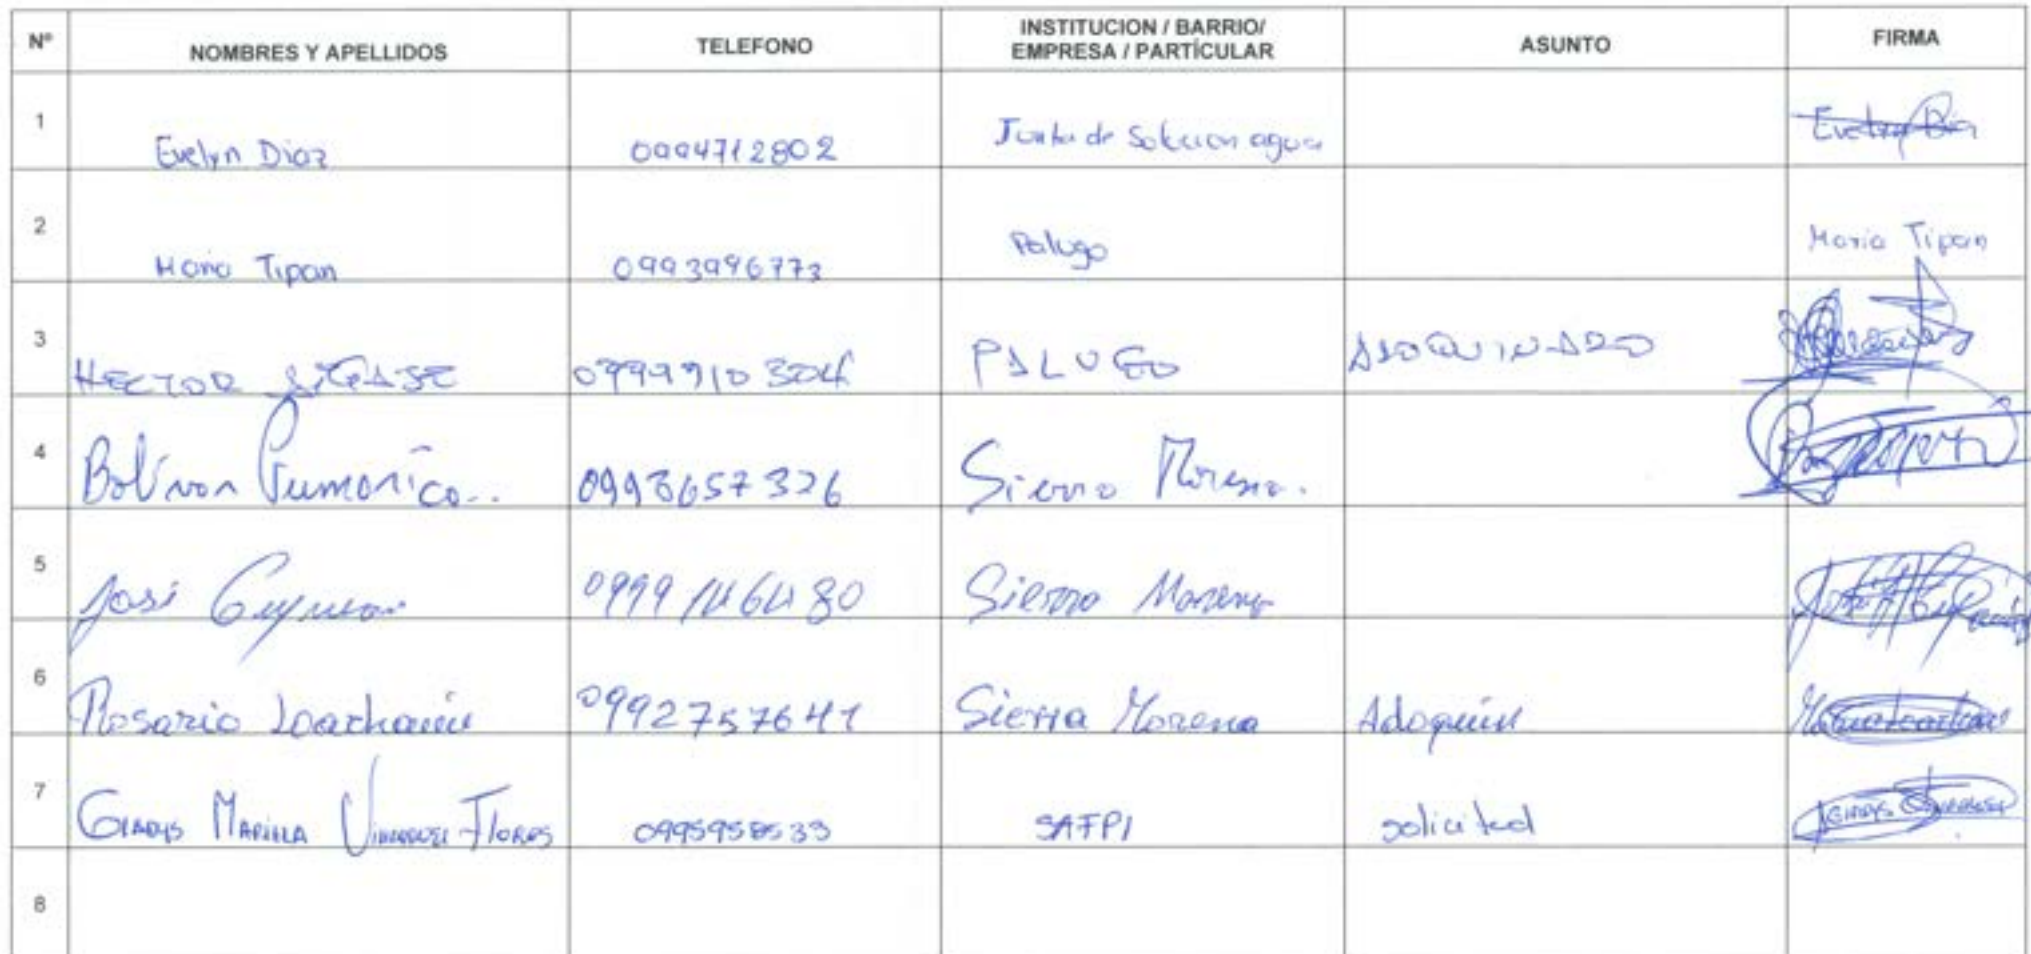 Nº NOMBRES Y APELLIDOS TELEFONO INSTITUCION / BARRIO/ EMPRESA / PARTÍCULAR ASUNTO FIRMA
1 Evelyn Diaz 0994712802 Junta de agua Evelyn Diaz
2 Maria Tipan 0993996773 Palugo Maria Tipan
3 HECTOR PALUGO ADOQUINADO
4 Bolivar Pumarica.. 0993657326 Sierra Morena.
5 José 0999146480 Sierra Morena
6 Rosario Loachamin 0992757641 Sierra Morena Adoquin
7 GLADYS FLORES 0995958533 SAFPI solicitud
8